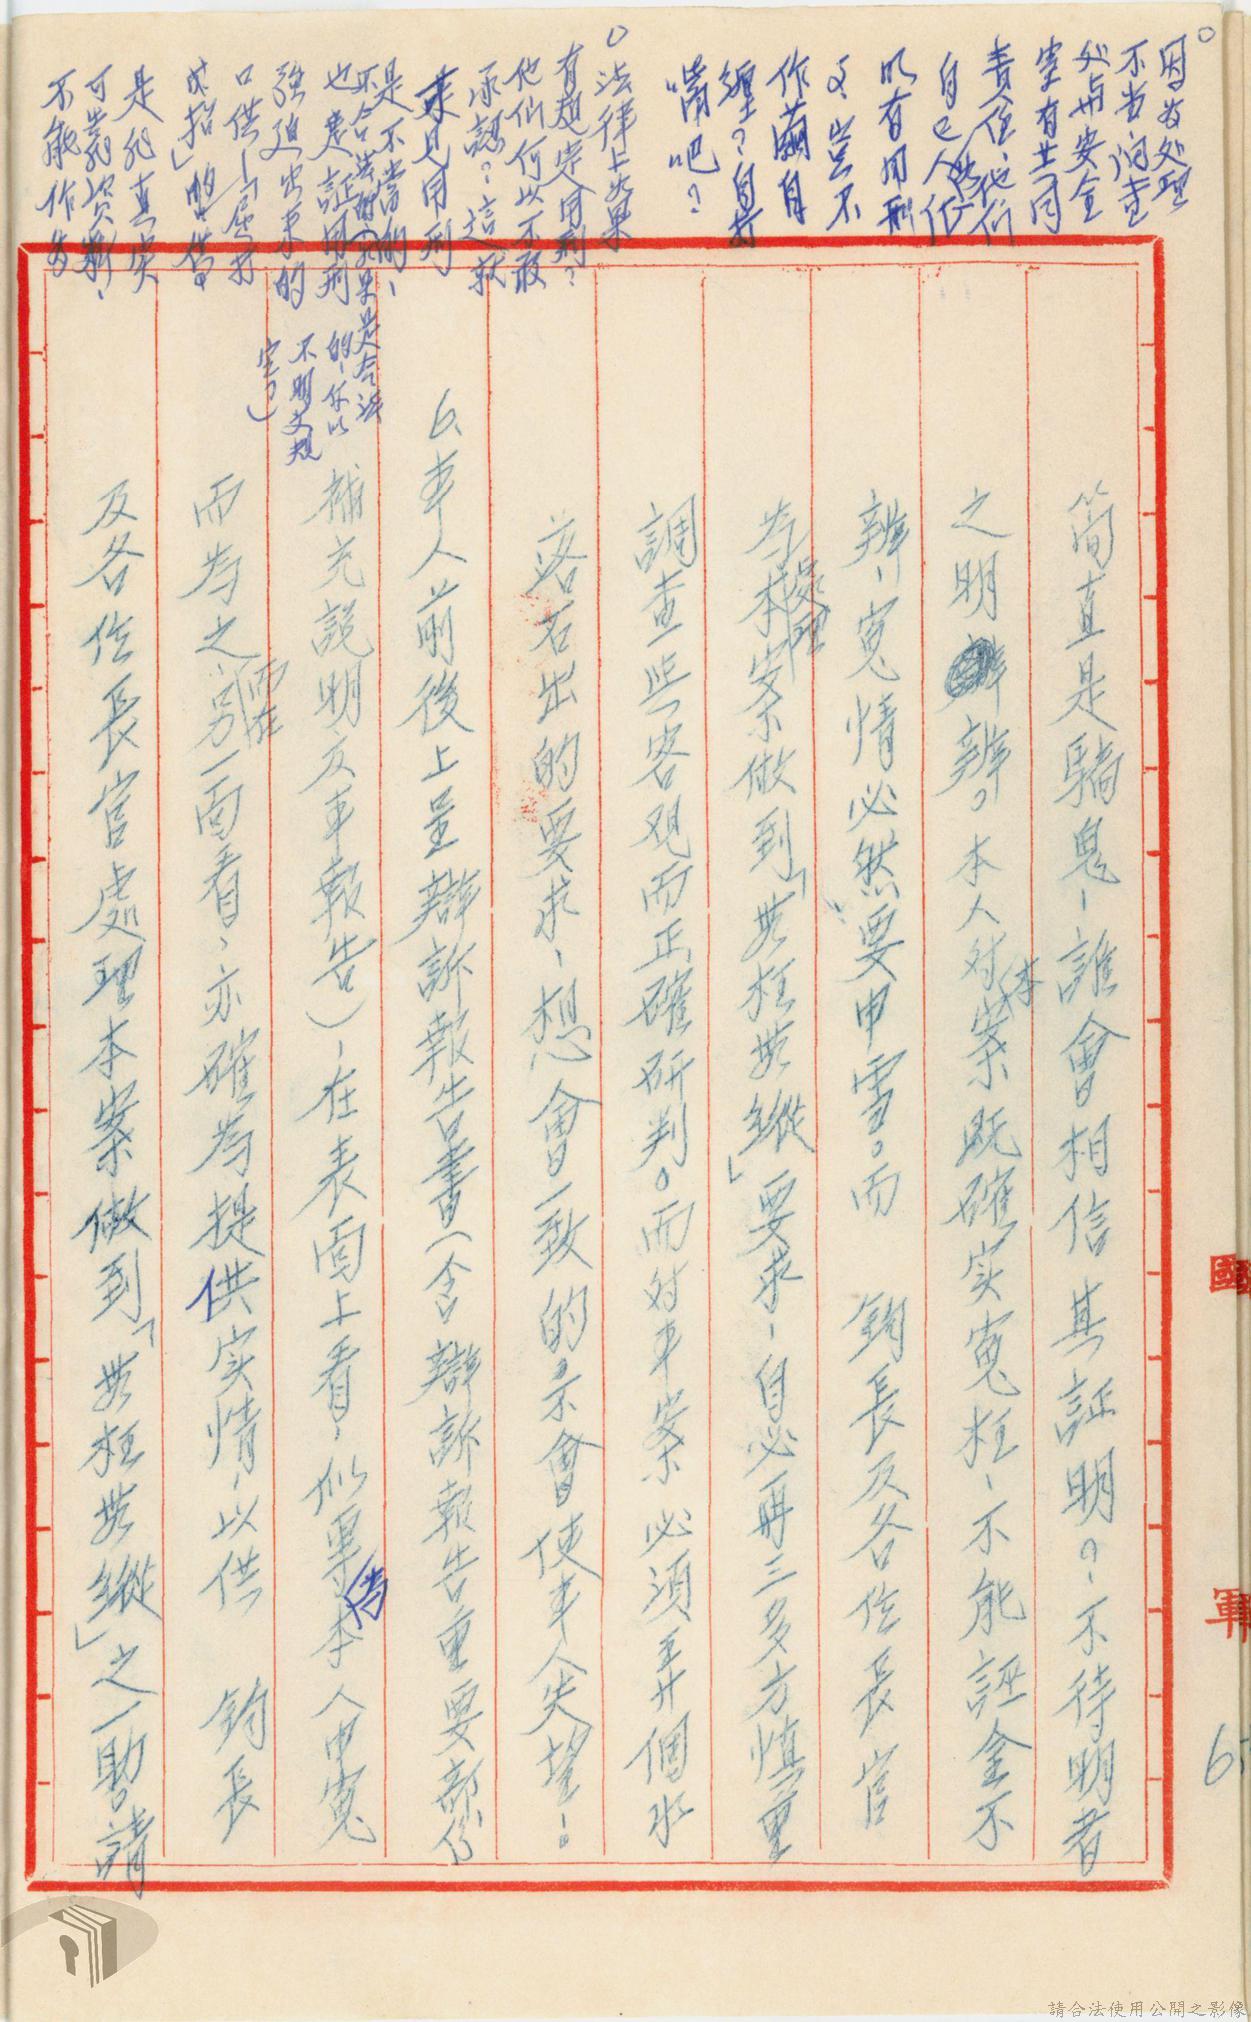 。因為处理
不当偵查
处与安全
室有共同
責任、他们
自己人供
明有用刑
又、豈不
作繭自
纏？自打
嘴吧？
。法律上如果
有規定用刑？
他们何以不敢
承認？這就
未見用刑
是不當的、
不合法的(如果是合法
的、何以
不明文規
定？)
也是証明用刑
強迫出來的
口供—「屈打
成招」的口供
是非真实
可靠資料、
不能作為
簡直是騙鬼、誰會相信其証明？、不待明者
之明辨。本人对本案既確实寃枉、不能誣金不
辨、寃情必然要申雪。而　鈞長及各位長官
為處理本案做到「無枉無縱」要求、自必再三多方慎重
調查一些客观而正確研判。而对本案必須弄個水
落石出的要求、想會一致的、亦會使本人失望、。
6.本人前後上呈辯訴報告書(含辯訴報告重要部份
補充說明及本報告)、在表面上看、似專為本人申寃
而為之、而在另一面看、亦確為提供实情、以供　鈞長
及各位長官處理本案做到「無枉無縱」之一助、請
國
軍
6
請合法使用公開之影像